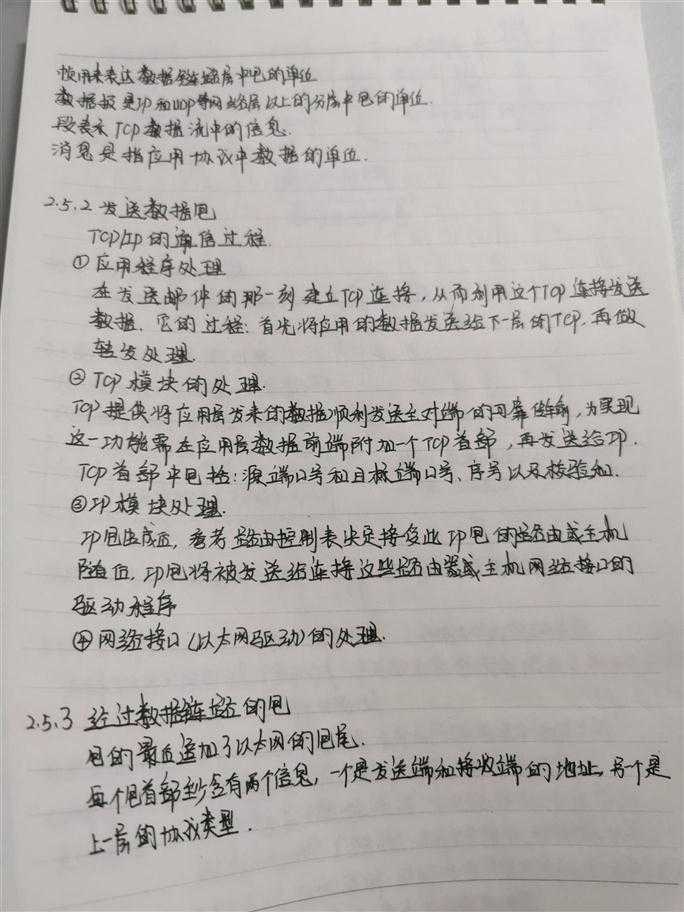 帧用来表达数据链路层中包的单位
数据报是IP和UDP等网络层以上的分层中包的单位.
段表示TCP数据流中的信息.
消息是指应用协议中数据的单位.
2.5.2 发送数据包
TCP/IP的通信过程.
① 应用程序处理
在发送邮件的那一刻建立TCP连接,从而利用这个TCP连接发送
数据. 它的过程:首先将应用的数据发送给下一层的TCP.再做
转发处理.
② TCP模块的处理.
TCP提供将应用层发来的数据顺利发送至对端的可靠传输,为实现
这一功能需在应用层数据前端附加一个TCP首部,再发送给IP.
TCP首部中包括:源端口号和目标端口号、序号以及校验和.
③IP模块处理.
IP包生成后,参考路由控制表决定接受此IP包的路由或主机
随后,IP包将被发送给连接这些路由器或主机网络接口的
驱动程序
④网络接口(以太网驱动)的处理.
2.5.3 经过数据链路的包
包的最后追加了以太网的包尾.
每个包首部至少含有两个信息,一个是发送端和接收端的地址,另一个是
上一层的协议类型.